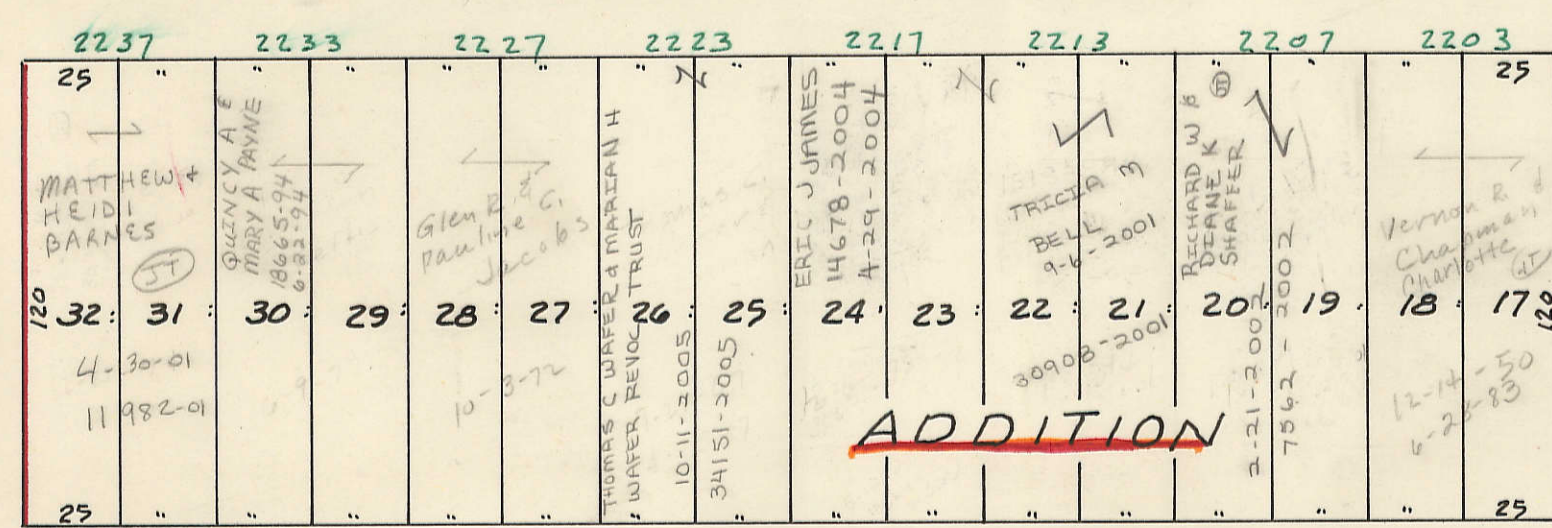 2237 2233 2227 2223 2217 2213 2207 2203
25 " " " " " " " " " " " " " " 25
MATTHEW &
HEIDI
BARNES
JT
QUINCY A &
MARY A PAYNE
18665-94
6-22-94
Glen R. &
Pauline C.
Jacobs
THOMAS C WAFER & MARIAN H
WAFER REVOC TRUST
10-11-2005
34151-2005
ERIC J JAMES
14678-2004
4-29-2004
TRICIA M
BELL
9-6-2001
RICHARD W &
DIANE K
SHAFFER
JT
2-21-2002
7562-2002
Vernon R &
Chapman
Charlotte
JT
120 32 31 30 29 28 27 26 25 24 23 22 21 20 19 18 17 120
4-30-01
11982-01
10-3-72
30908-2001
12-14-50
6-28-83
ADDITION
25 " " " " " " " " " " " " " " 25